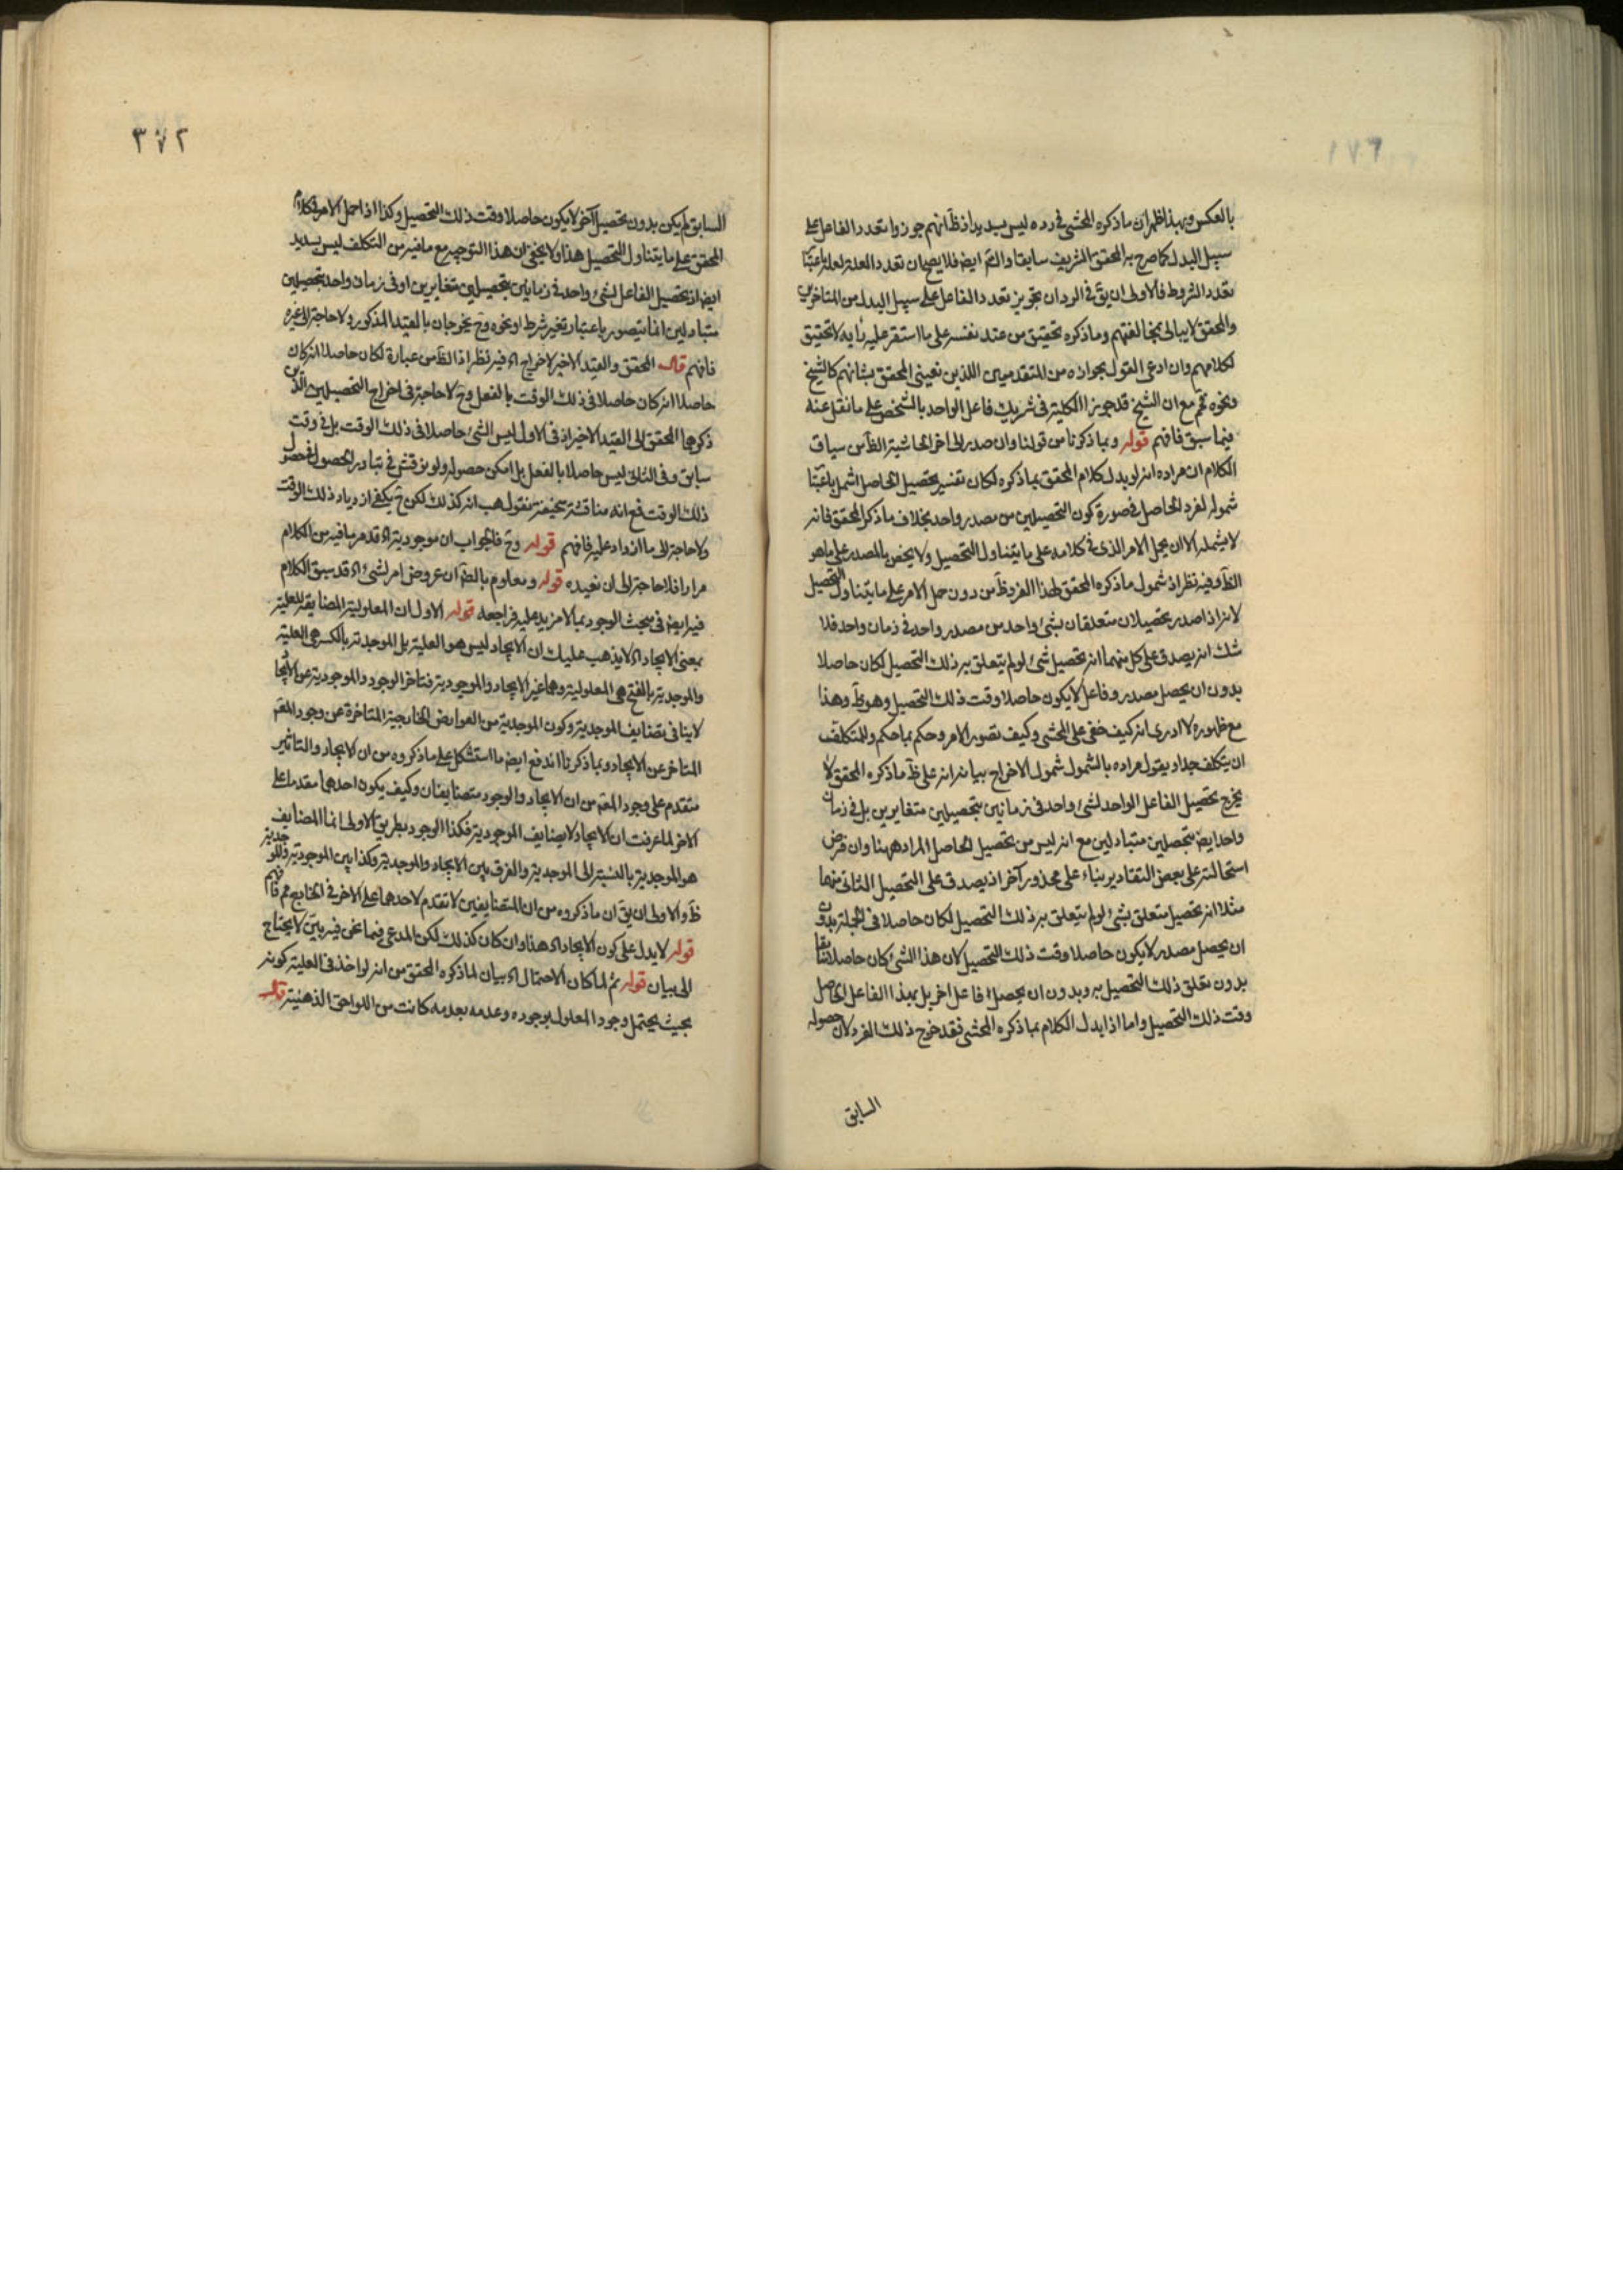 بالعكس وبهذا ظهر ان ما ذكره المحشى فى رده ليس بسديد اذ ظ انهم جوزوا تعدد الفاعل على
سبيل البدل كما صرح به المحقق الشريف سابقا والتم ايض فلا يصح ان تعدد العلة لعله باعتبا
تعدد الشروط فالاولى ان يق فى الرد ان تجويز تعدد الفاعل على سبيل البدل من المتاخرين
والمحقق لا يبالى بمخالفتهم وما ذكره تحقيق من عند نفسه على ما استقر عليه رأيه لا تحقيق
لكلامهم وان ادعى القول بجوازه من المتقدمين اللذين نعينى المحقق بشانهم كالشيخ
ونحوه تم مع ان الشيخ قد جوز الكلية فى شريك فاعل الواحد بالشخص على ما نقل عنه
فيما سبق فافهم قوله وبما ذكرنا من قولنا وان صدر الى اخر الحاشية الظ من سياق
الكلام ان مراده انه لو بدل كلام المحقق بما ذكره لكان تفسير تحصيل الحاصل اشمل باعتبا
شموله لفرد الحاصل فى صورة كون التحصيلين من مصدر واحد بخلاف ما ذكر المحقق فانه
لا يشمله الا ان يحمل الامر الذى فى كلامه على ما يتناول التحصيل ولا يخص بالمصدر على ما هو
الظ وفيه نظر اذ شمول ما ذكره المحقق لهذا الفرد ظ من دون حمل الامر على ما يتناول التحصيل
لانه اذا صدر تحصيلان متعلقان بشئ واحد من مصدر واحد فى زمان واحد فلا
شك انه يصدق على كل منهما انه تحصيل شئ لو لم يتعلق به ذلك التحصيل لكان حاصلا
بدون ان يحصل مصدر وفاعل لا يكون حاصلا وقت ذلك التحصيل وهو ظ وهذا
مع ظهوره لا ادرى انه كيف خفى على المحشى وكيف تصور الامر وحكم بما حكم وللمتكلف
ان يتكلف جدا ويقول مراده بالشمول شمول الاخراج بيانه انه على ظ ما ذكره المحقق لا
يخرج تحصيل الفاعل الواحد لشئ واحد فى زمانين بتحصيلين متغايرين بل فى زمان
واحد ايض بتحصلين متبادلين مع انه ليس من تحصيل الحاصل المراد ههنا وان فرض
استحالته على بعض التقادير بناء على محذور آخر اذ يصدق على التحصيل الثانى منهما
مثلا انه تحصيل متعلق بشئ لو لم يتعلق به ذلك التحصيل لكان حاصلا فى الجملة بدون
ان يحصل مصدر لا يكون حاصلا وقت ذلك التحصيل لان هذا الشئ كان حاصلا سابقا
بدون تعلق ذلك التحصيل به وبدون ان يحصل فاعل اخر بل بهذا الفاعل الحاصل
وقت ذلك التحصيل واما اذا بدل الكلام بما ذكره المحشى فقد خرج ذلك الفرد لان حصوله
السابق
٣٧٢
السابق لم يكن بدون تحصيل آخر لا يكون حاصلا وقت ذلك التحصيل وكذا اذا حمل الامر فى كلام
المحقق على ما يتناول التحصيل هذا ولا يخفى ان هذا التوجيه مع ما فيه من التكلف ليس بسديد
ايض اذ تحصيل الفاعل لشئ واحد فى زمانين بتحصيلين متغايرين او فى زمان واحد بتحصيلين
متبادلين انما يتصور باعتبار تغير شرط او نحوه وح يخرجان بالقيد المذكور ولا حاجة الى غيره
فافهم قال المحقق والقيد الاخير لاخراج اه فيه نظر اذ الظ من عبارة لكان حاصلا انه كان
حاصلا انه كان حاصلا فى ذلك الوقت بالفعل وح لا حاجة فى اخراج التحصيلين الذين
ذكرهما المحقق الى القيد الاخير اذ فى الاول ليس الشئ حاصلا فى ذلك الوقت بل فى وقت
سابق وفى الثانى ليس حاصلا بالفعل بل امكن حصوله ولو نوقش فى تبادر الحصول فحصول
ذلك الوقت فمع انه مناقشة سخيفة نقول هب انه كذلك لكن ح يكفى ازدياد ذلك الوقت
ولا حاجة الى ما ازداد عليه فافهم قوله وح فالجواب ان موجوديته اه قد مر ما فيه من الكلام
مرارا فلا حاجة الى ان نعيده قوله ومعلوم بالضة ان عروض امر لشئ اه قد سبق الكلام
فيه ايض فى مبحث الوجود بما لا مزيد عليه فراجعه قوله الاول ان المعلولية المضايفة للعلية
بمعنى الايجاد اه لا يذهب عليك ان الايجاد ليس هو العلية بل الموجدية بالكسر هى العلية
والموجدية بالفتح هى المعلولية وهما غير الايجاد والموجودية فتاخر الوجود والموجودية عن الايجا
لا ينافى تضايف الموجدية وكون الموجدية من العوارض الخارجية المتاخرة عن وجود المعه
المتاخر عن الايجاد وبما ذكرنا اندفع ايض ما استشكل على ما ذكروه من ان الايجاد والتاثير
متقدم على وجود المعه من ان الايجاد والوجود متضايفان وكيف يكون احدهما مقدما على
الاخر لما عرفت ان الايجاد لا يضايف الموجودية فكذا الوجود بطريق الاولى انما المضايف
هو الموجدية بالنسبة الى الموجدية والفرق بين الايجاد والموجدية وكذا بين الموجودية والموجدية
ظ والاولى ان يق ان ما ذكروه من ان المتضايفين لا تقدم لاحدهما على الاخر فى الخارج مم فافهم
قوله لا يدل على كون الايجاد اه هذا وان كان كذلك لكن المدعى فيما نحن فيه بين لا يحتاج
الى بيان قوله ثم لما كان الاحتمال اه بيان لما ذكره المحقق من انه لو اخذ فى العلية كونه
بحيث يحتمل وجود المعلول بوجوده وعدمه بعدمه كانت من اللواحق الذهنية قال